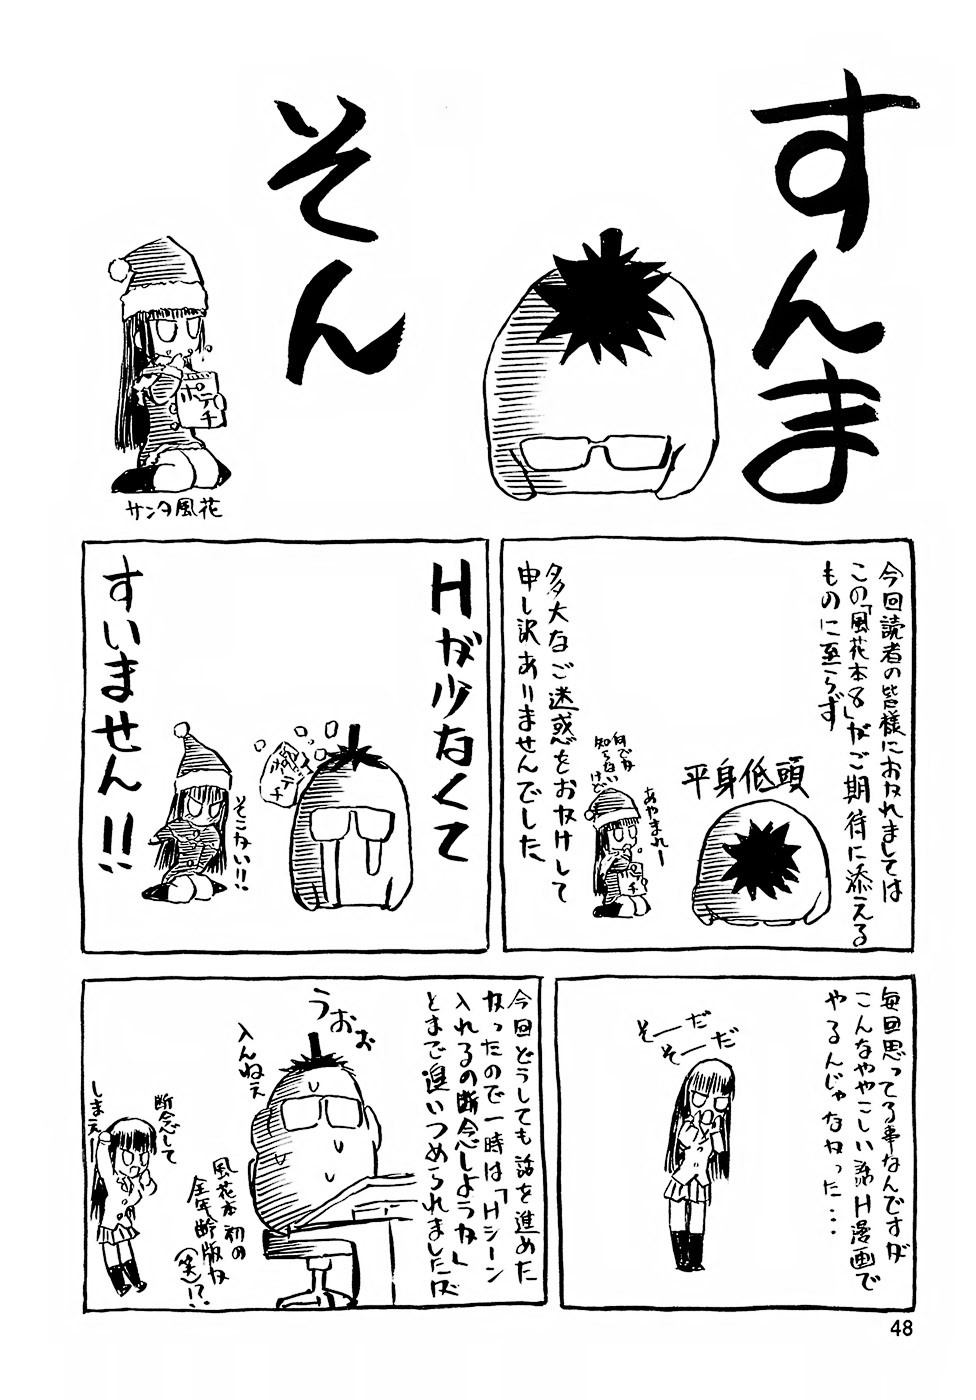 すんま
そん
サンタ風花
ポテチ
今回読者の皆様におかれましては
この「風花本8」がご期待に添える
ものに至らず
平身低頭
あやまれー
何でか
知らない
けど
ポテチ
多大なご迷惑をおかけして
申し訳ありませんでした
Hが少なくて
ポテチ
そこかい!!
すいません!!
毎回思ってる事なんですが
こんなややこしい話H漫画で
やるんじゃなかった・・・
そーだ
そーだ
今回どうしても話を進めた
かったので一時は「Hシーン
入れるの断念しようか」
とまで追いつめられましたが
うおぉ
入んねえ
風花本初の
全年齢版か
(笑)!?
断念して
しまえ
48